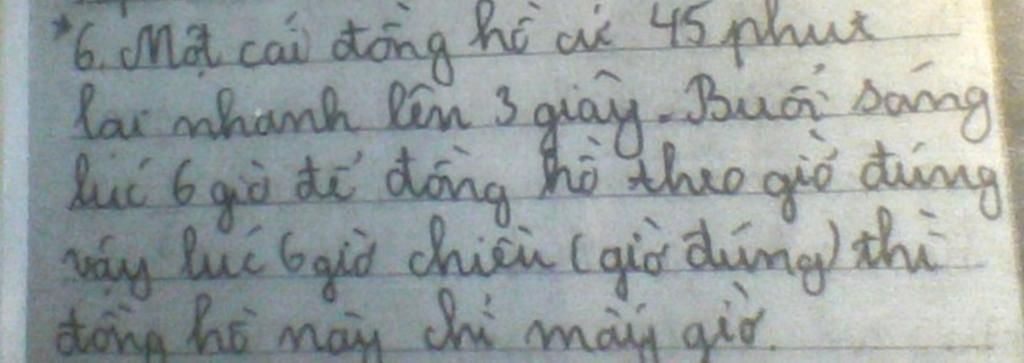 *6. Một cái đồng hồ cứ 45 phút
lại nhanh lên 3 giây. Buổi sáng
lúc 6 giờ để đồng hồ theo giờ đúng
vậy lúc 6 giờ chiều (giờ đúng) thì
đồng hồ này chỉ mấy giờ.